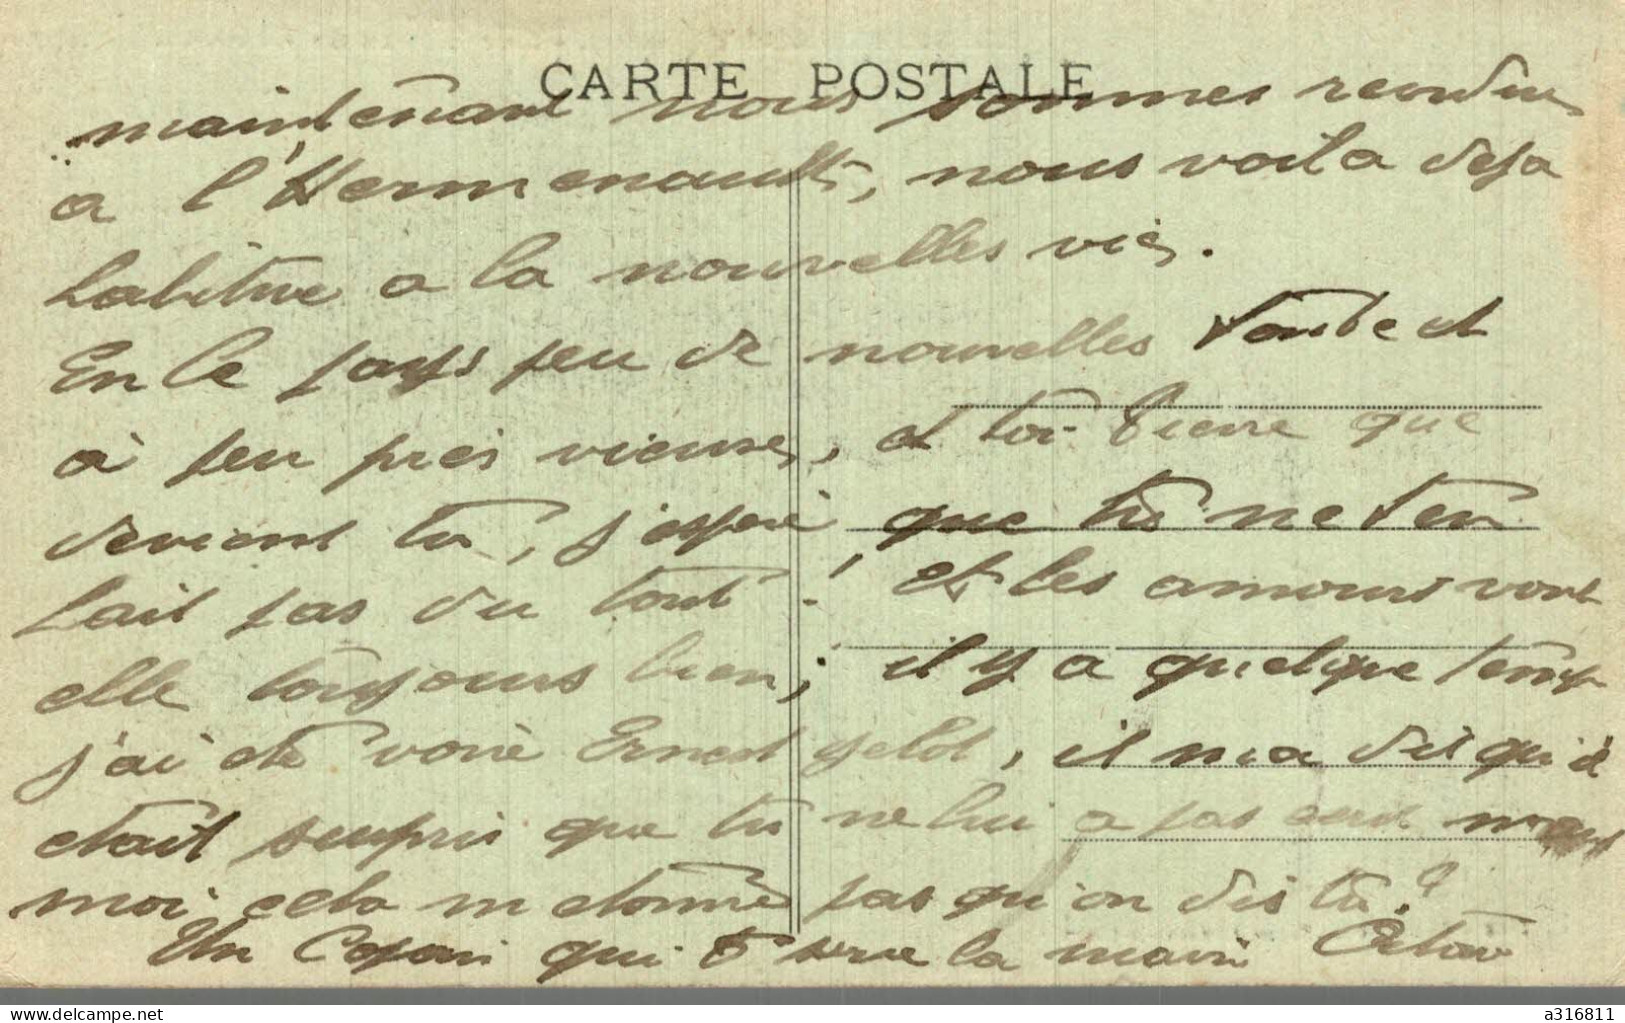 CARTE POSTALE
maintenant nous sommes rendus
a l'Hermenault, nous voila deja
habitue a la nouvelles vie.
En ce pays peu de nouvelles
à peu pres vieuses, et toi Pierre que
devient tu, j'espere que tu ne t'en
fait pas du tout! et les amours vont
elle toujours bien; il y a quelque temps
j'ai ete voire Ernest, il m'a dit qu'il
etait surpris que tu ne lui a pas mais
moi cela m etonne pas qu'on dis tu?
Un Copain qui te serre la main Octave
www.delcampe.net
a316811